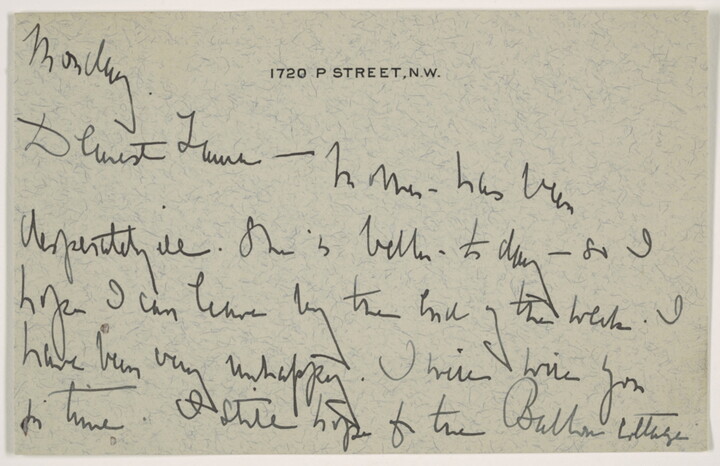 Monday.
1720 P STREET, N.W.
Dearest — Mother has been
desperately ill. She is better to day — so I
hope I can leave by the end of the week. I
have been very unhappy. I will wire you
in time. I still hope for the cottage